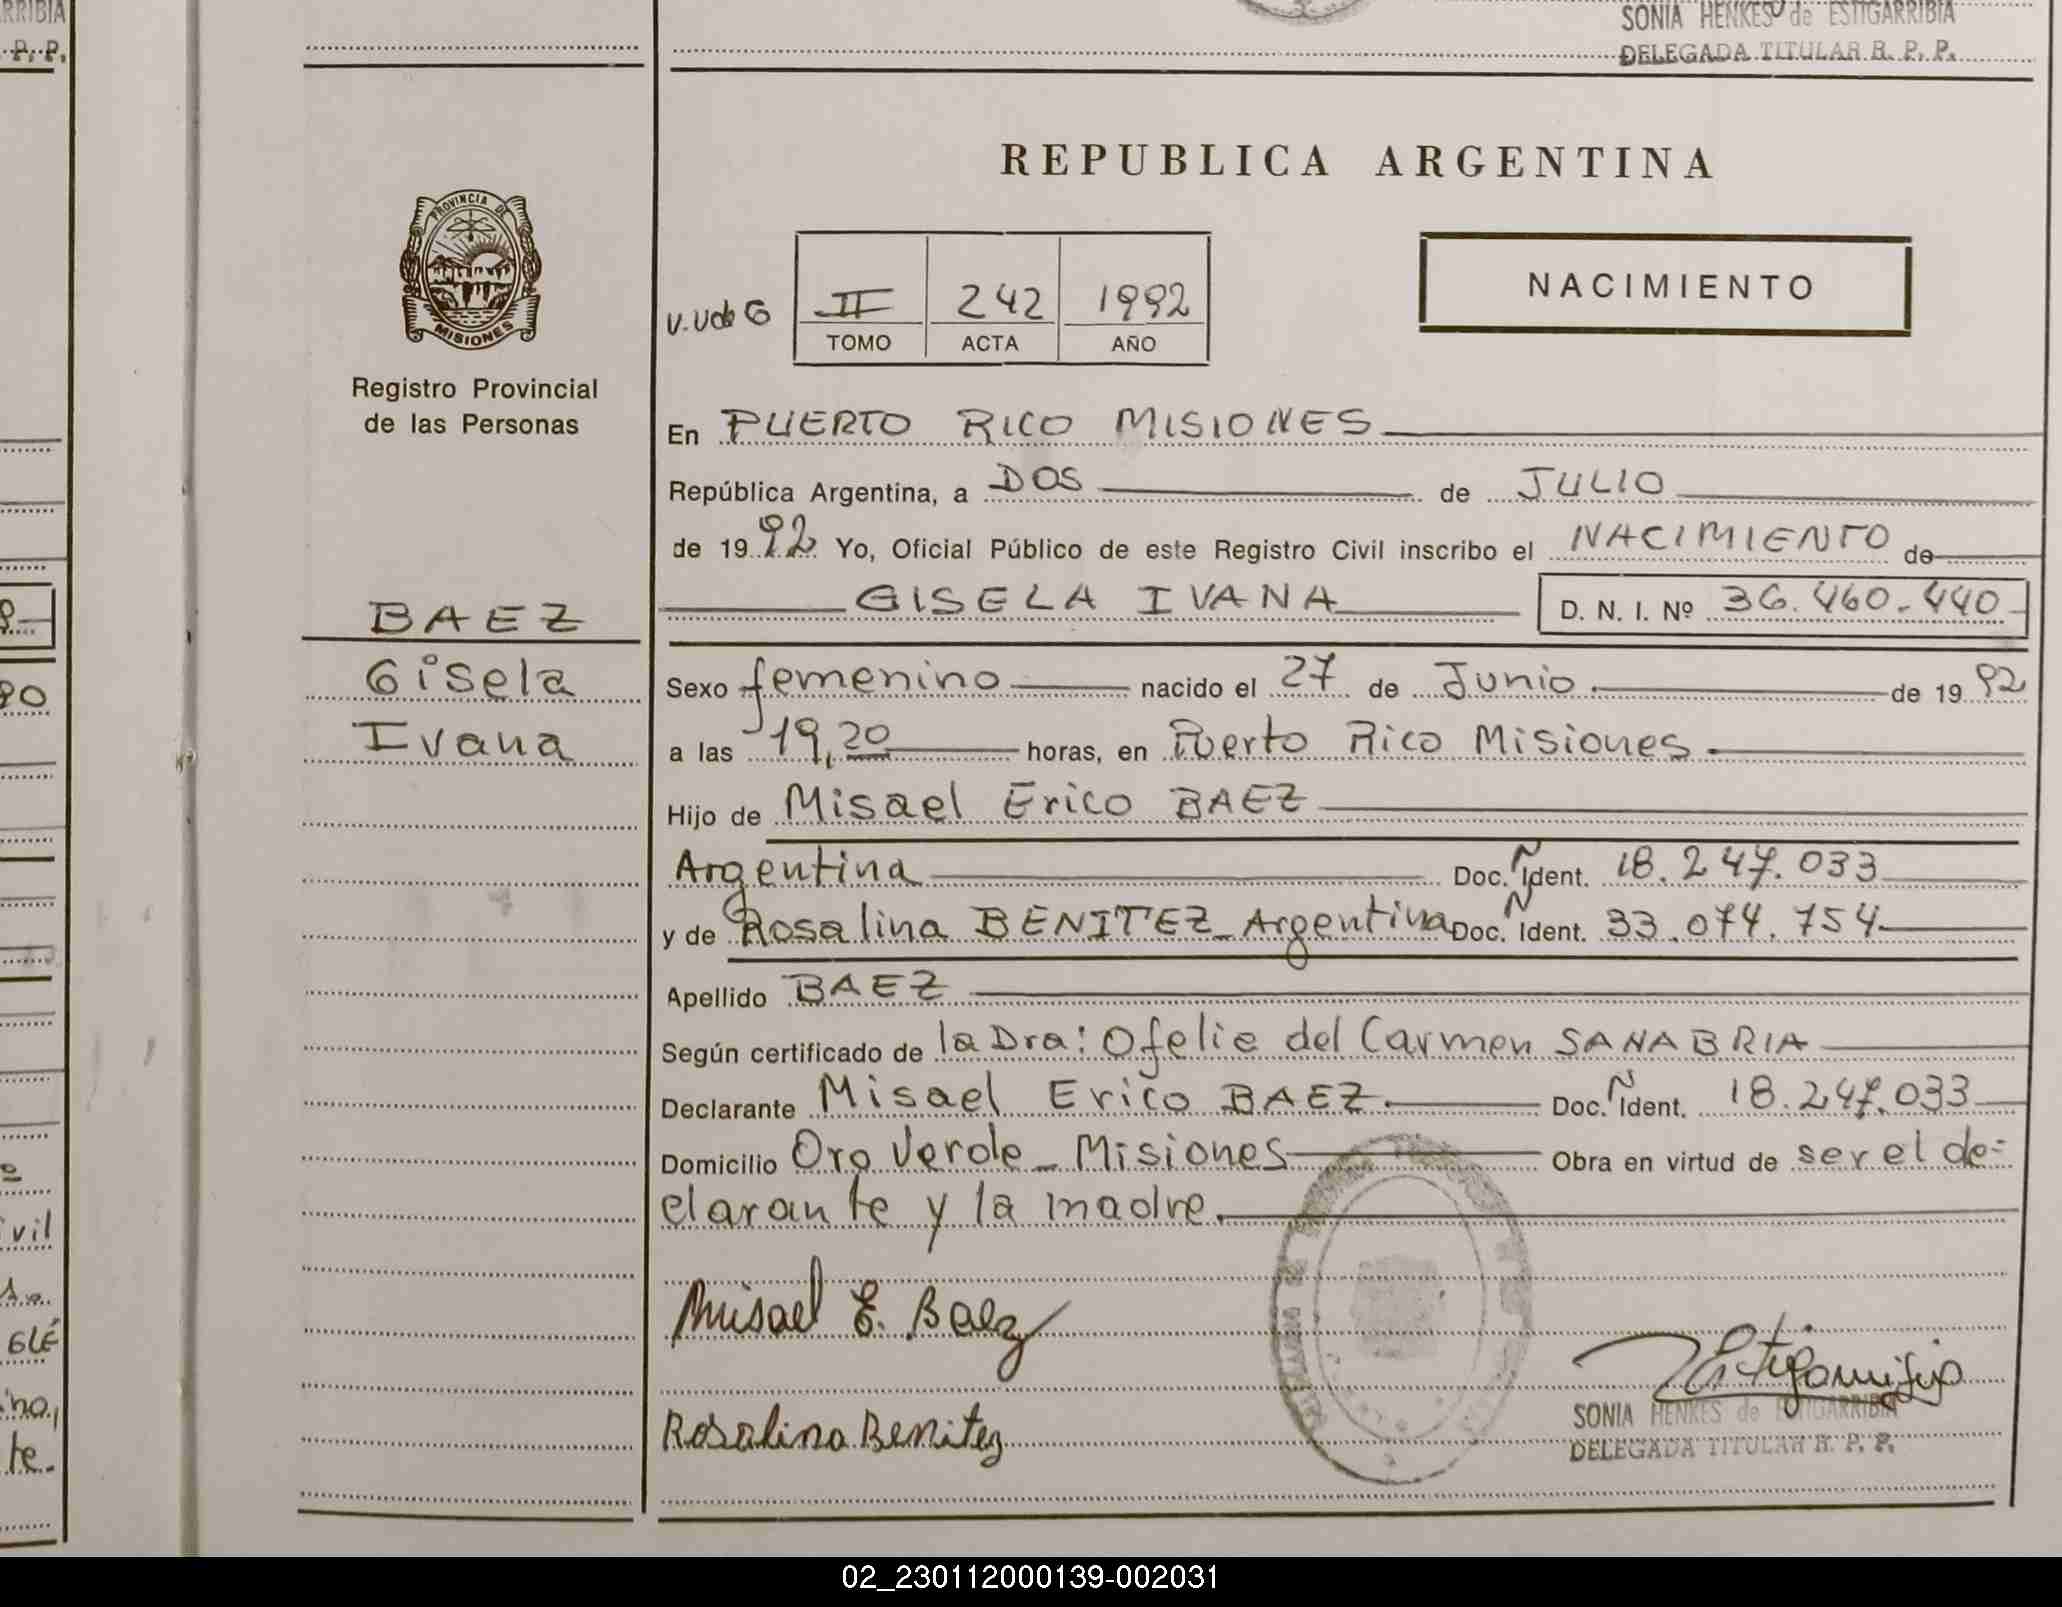 SONIA HENKES de ESTIGARRIBIA
DELEGADA TITULAR R. P. P.
REPUBLICA ARGENTINA
PROVINCIA DE
MISIONES
Registro Provincial
de las Personas
II 242 1992
TOMO ACTA AÑO
NACIMIENTO
En PUERTO RICO MISIONES
República Argentina, a DOS de JULIO
de 1992 Yo, Oficial Público de este Registro Civil inscribo el NACIMIENTO de
GISELA IVANA D. N. I. Nº 36.460.440
BAEZ
Gisela
Ivana
Sexo femenino nacido el 27 de Junio de 1992
a las 19,20 horas, en Puerto Rico Misiones
Hijo de Misael Erico BAEZ
Argentina Doc. Ident. 18.247.033
y de Rosalina BENITEZ_Argentina Doc. Ident. 33.074.754
Apellido BAEZ
Según certificado de la Dra: Ofelia del Carmen SANABRIA
Declarante Misael Erico BAEZ. Doc. Ident. 18.247.033
Domicilio Oro Verde_Misiones Obra en virtud de ser el de=
clarante y la madre.
Misael E. Baez
Rosalina Benitez
SONIA HENKES de ESTIGARRIBIA
DELEGADA TITULAR R. P. P.
02_230112000139-002031